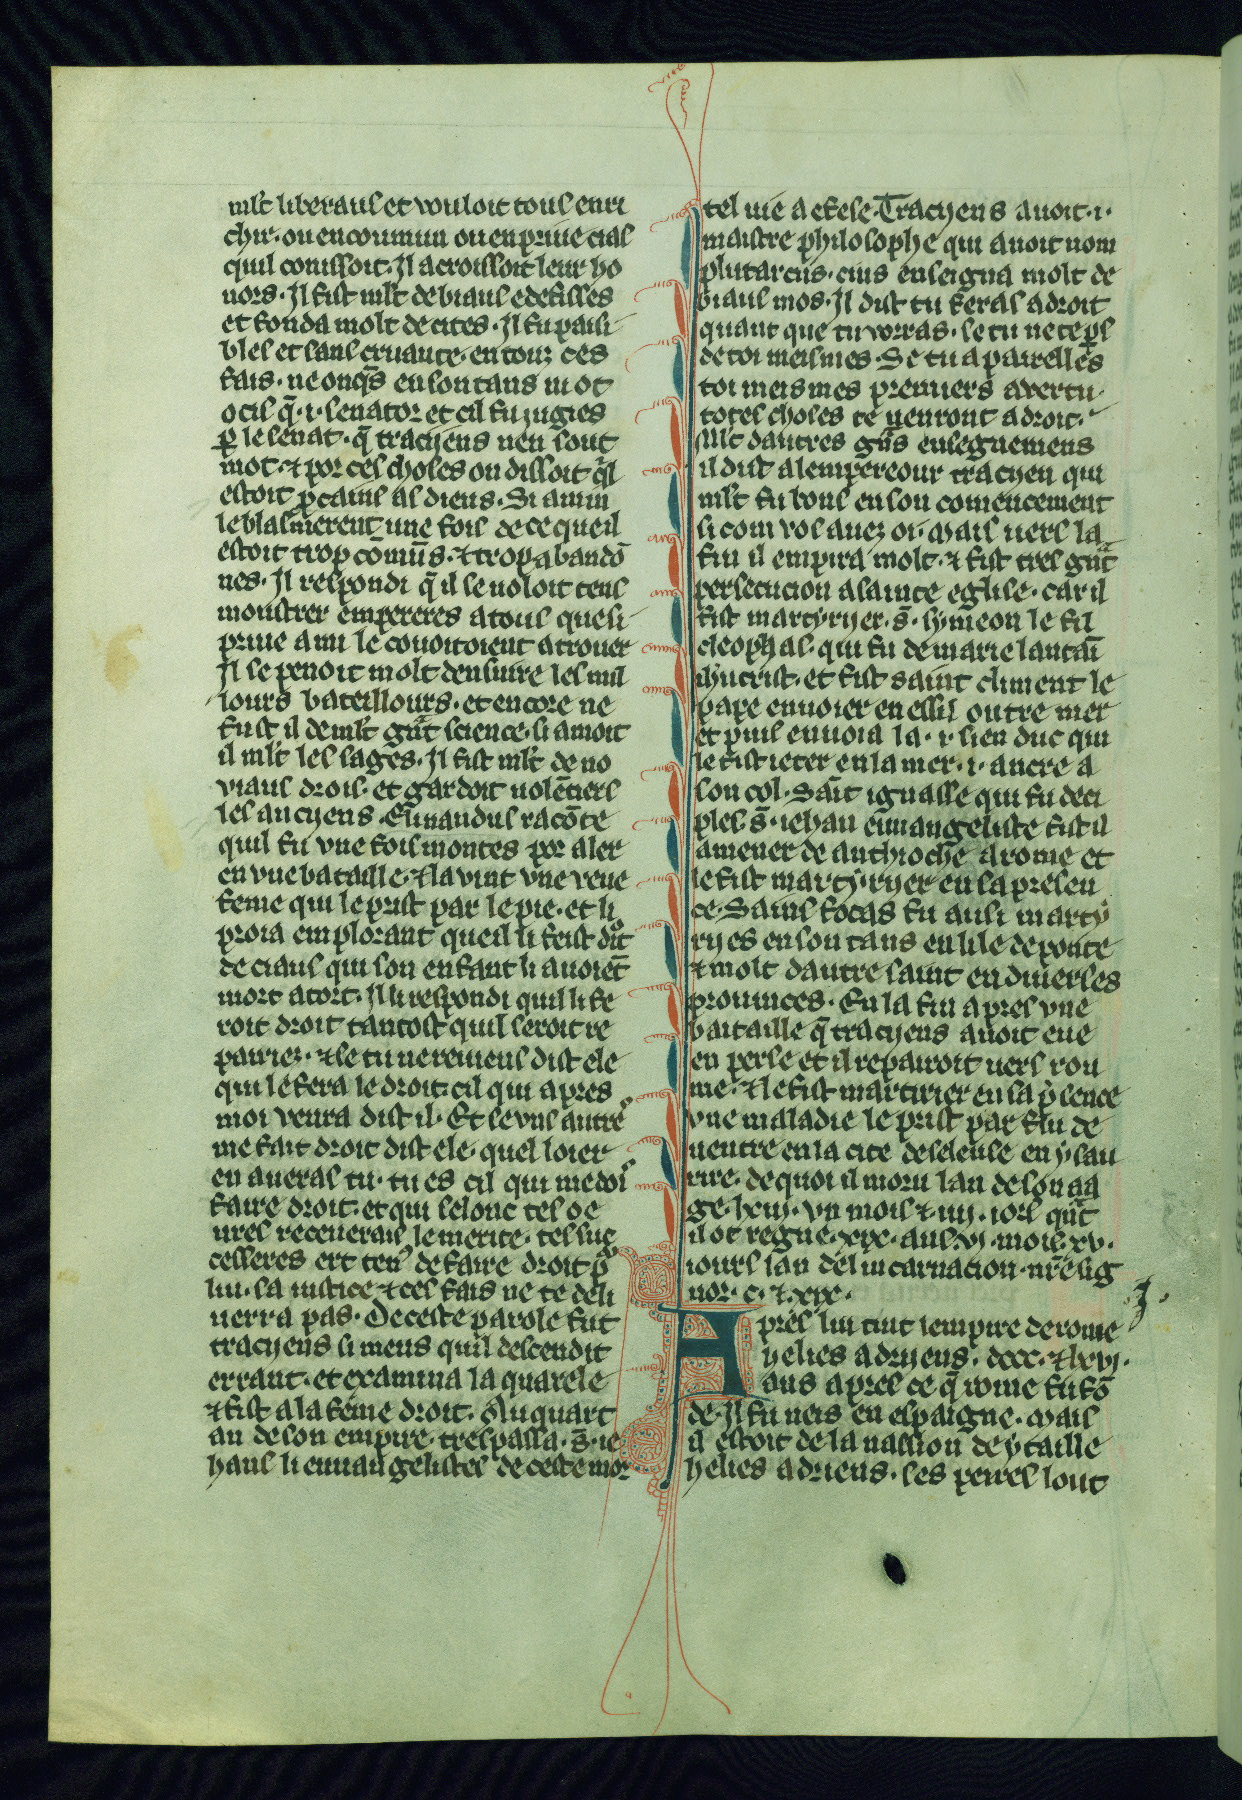 ml't liberaus et vouloit tous enri
chir. ou en coumun ou en priue ciaus
quil conissoit. Il acroissoit leur ho
nors. Il fist ml't de biaus edefisses
et fonda molt de cites. Il fu paisi
bles et sans cruaute. en touz ces
fais. ne onq̄s en son tans mot
ocis q̄ .i. senator et cil fu iugies
ꝑ le senat. q̄ traciens nen sout
mot. ⁊ por ces choses on dissoit q̄l
estoit ꝑcauis as diens. Si amin
le blasmerent une fois de ce queil
estoit trop cōmūs. ⁊ trop abandō
nes. Il respondi q̄ il se uoloit teus
moustrer empereres a tous quesi
priue ami le couoitoient a trouer
Il se penoit molt densuire les mil
lours bateillours. et encore ne
fust il de ml't gūt science. si amoit
il ml't les sages. Il fist ml't de no
viaus drois. et gardoit uolētiers
les anciens. Elinandus racōte
quil fu vne fois montes por aler
en vne bataille. ⁊ la vint vne veue
feme qui le prist par le pie. et li
proia em plorant queil li feist dr̄t
de ciaus qui son enfant li auoiēt
mort a tort. Il li respondi quil li fe
roit droit tantost quil seroit re
pairiez. ⁊ se tu ne reuiens dist ele
qui le fera le droit. cil qui apres
moi venra dist il. Et se vns autre
me fait droit dist ele. quel loier
en aueras tu. tu es cil qui me dois
faire droit. et qui selonc tes oe
ures receuerais le merite. tes suc
cesseres ert tenˀ de faire droit pᵒ
lui. sa iustice ⁊ ces fais ne te deli
uerra pas. De ceste parole fut
traciens si meus quil descendit
errant. et examina la quarele
⁊ fist a la feme droit. Au quart
an de son empire. trespassa .s̄. ie
hans li euuangelistes de ceste mor
tel uie a efese. Traciens auoit .i.
maistre philosophe qui auoit nom
plutarcus. cius enseigna molt de
biaus mos. Il dist tu feras a droit
quant que tu vorras. se tu ne te ꝑs
de toi meismes. Se tu apareilles
toi meismes premiers a vertu.
totes choses te uenront a droit.
Ml't dautres gūs enseguemens
il dist a lempereour tracien qui
ml't fu bons en son comencement
si com vos auez oi. Mais uers la
fin il empira molt. ⁊ fist tres gūt
persecucion a sainte eglise. car il
fist martyriier .s̄. symeon le fil
cleophas. qui fu de marie lantaī
ihucrist. et fist saint climent le
pape enuoier en essil outre mer
et puis enuoia la .i. sien duc qui
le fist ieter en la mer .i. ancre a
son col. Sāit ignasse qui fu deci
ples .s̄. iehan euuangeliste fist il
amener de anthioche a rome et
le fist martyriier en sa presen
ce. Sains focas fu ausi marty
riies en son tans en lile de ponte
⁊ molt dautre saint en diuerses
prouinces. En la fin apres vne
bataille q̄ traciens auoit eue
en perse et il repairoit uers rou
me. ⁊ le fist martirier en sa p̄sence
vne maladie le prist par flu de
uentre en la cite de seleuse en ysau
rire. de quoi il moru lan de son aa
ge .lxiij. vn mois ⁊ .iiij. iors q̄nt
il ot regne .xix. ans .vi. mois .xv.
iours lan del incarnacion nr̄e sig
nor .c. ⁊ .xix.
Apres lui tint lempire de rome
helies adriiens. dccc. ⁊ lxvj.
ans apres ce q̄ rome fu fō
de. Il fu neis en espaigne. Mais
il estoit de la nassion de ytaille
helies adriens. ses peires sont